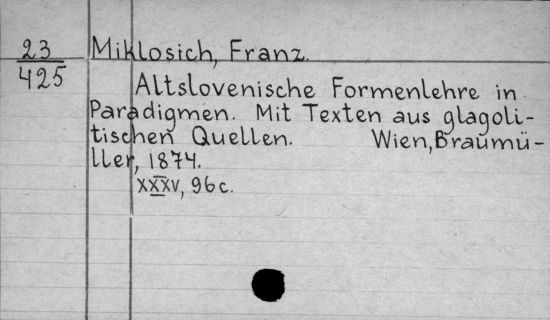 23
425
Miklosich, Franz.
Altslovenische Formenlehre in
Paradigmen. Mit Texten aus glagoli-
tischen Quellen. Wien, Braumü-
ller, 1874.
XXXV, 96 c.